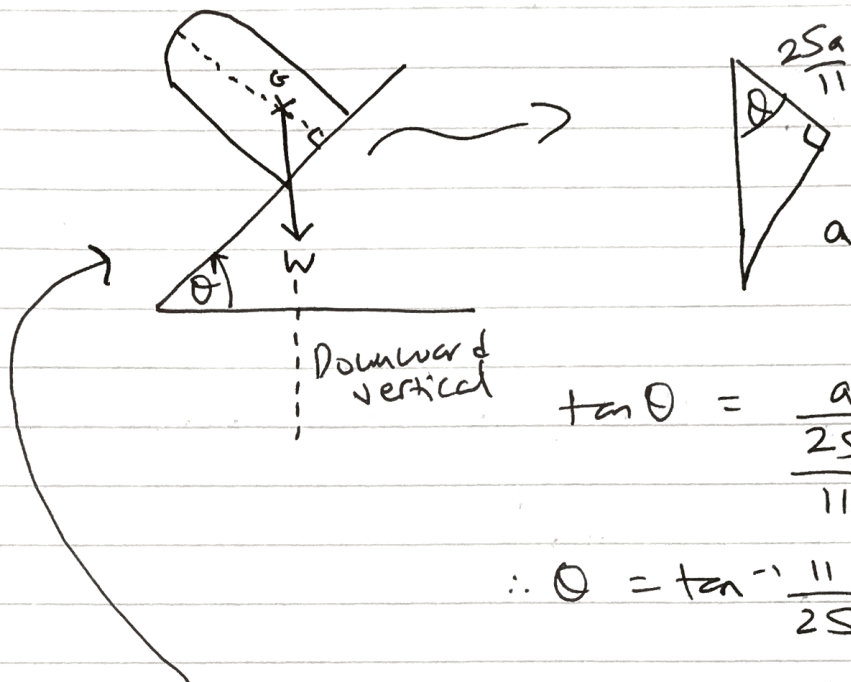 G
W
θ
Downward
vertical
25a
11
θ
a
tan θ = a
25
11
∴ θ = tan⁻¹ 11
25